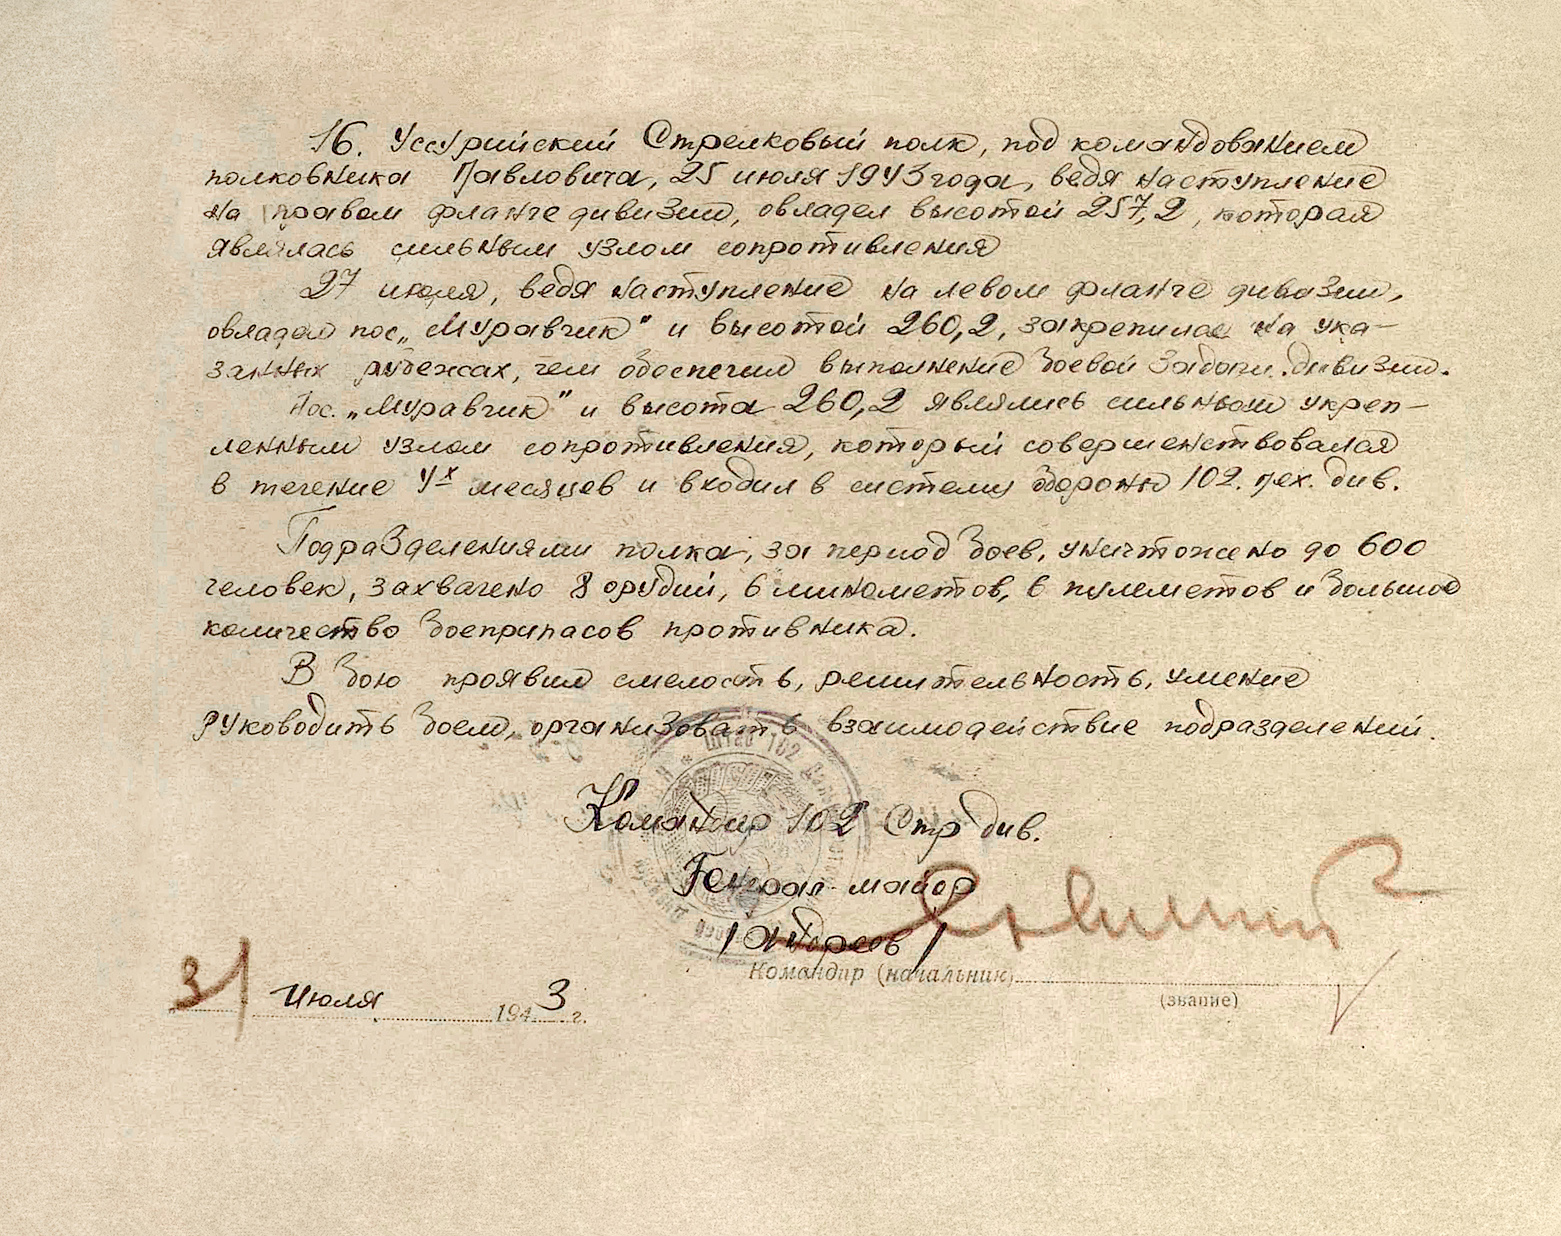 16. Уссурийский Стрелковый полк, под командованием
полковника Павловича, 25 июля 1943 года, ведя наступление
на правом фланге дивизии, овладел высотой 257,2, которая
являлась сильным узлом сопротивления
27 июля, ведя наступление на левом фланге дивизии,
овладел пос. „Муравчик" и высотой 260,2, закрепился на ука-
занных рубежах, чем обеспечил выполнение боевой задачи дивизии.
Пос. „Муравчик" и высота 260,2 являлись сильным укреп-
ленным узлом сопротивления, который совершенствовался
в течение 4х месяцев и входил в систему обороны 102. пех. див.
Подразделениями полка, за период боев, уничтожено до 600
человек, захвачено 8 орудий, 6 минометов, 6 пулеметов и большое
количество боеприпасов противника.
В бою проявил смелость, решительность, умение
руководить боем, организовать взаимодействие подразделений.
Командир 102 Стр див.
Генерал-майор
/Андреев/
Командир (начальник)
(звание)
31 Июля 1943 г.
Штаб 102